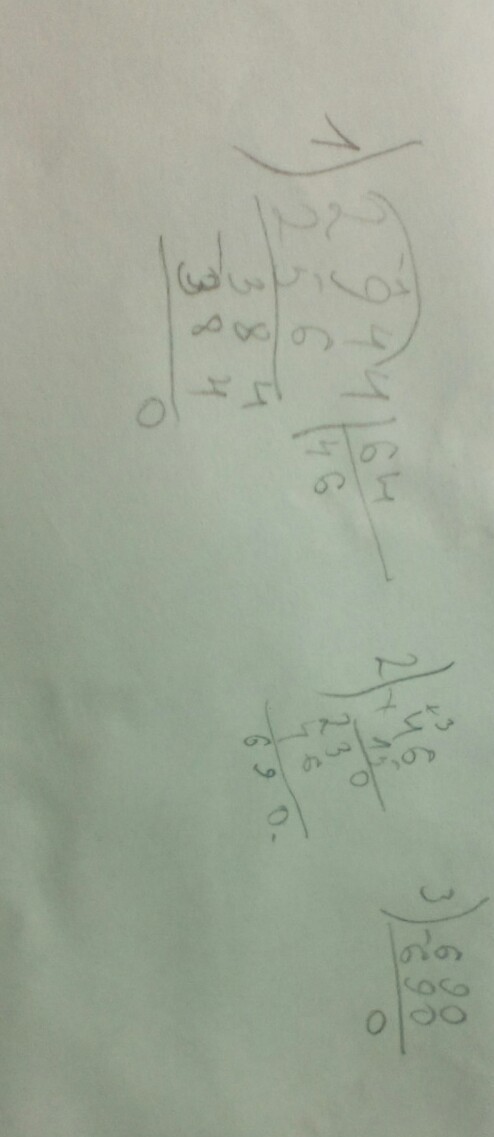 1) 2944 | 64
- 256 | 46
384
- 384
0
2) × 46
15
230
46
690.
3) - 690
690
0